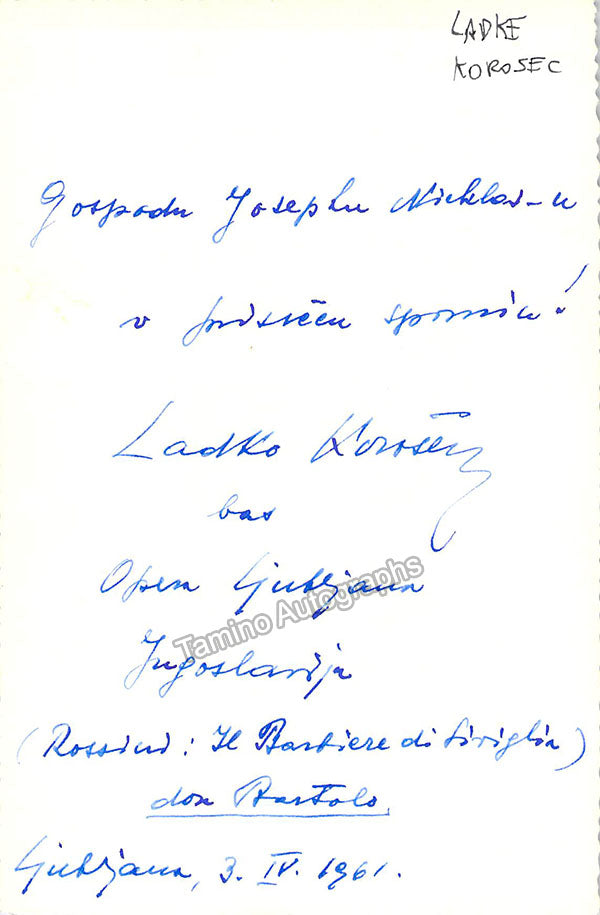 LADKE
KOROSEC
Gospodu Josephu Nicklas-u
v prisrčen spomin!
Ladko Korošec
bas
Opera Ljubljana
Tamino Autographs
Jugoslavija
(Rossini: Il Barbiere di Siviglia)
don Bartolo
Ljubljana, 3. IV. 1961.